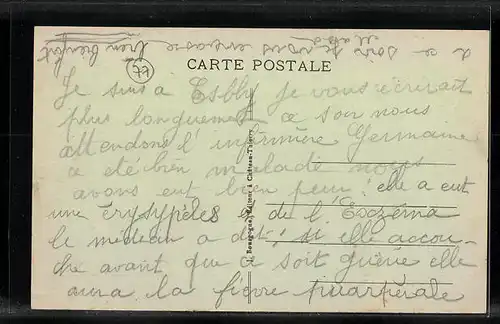 à ce soir je vous embrasse bien bien fort
CARTE POSTALE
Je suis a Esbly je vous écrirait
plus longuement ce soir nous
attendons l'infirmière Germaine
a été bien malade nous
avons eut bien peur! elle a eut
une érysypèles et de l'Exzéma
le médecin a dit: si elle accou-
che avant que ce soit guérie elle
aura la fièvre puarpérale
Bourgogne, Editeur à Château-Thierry